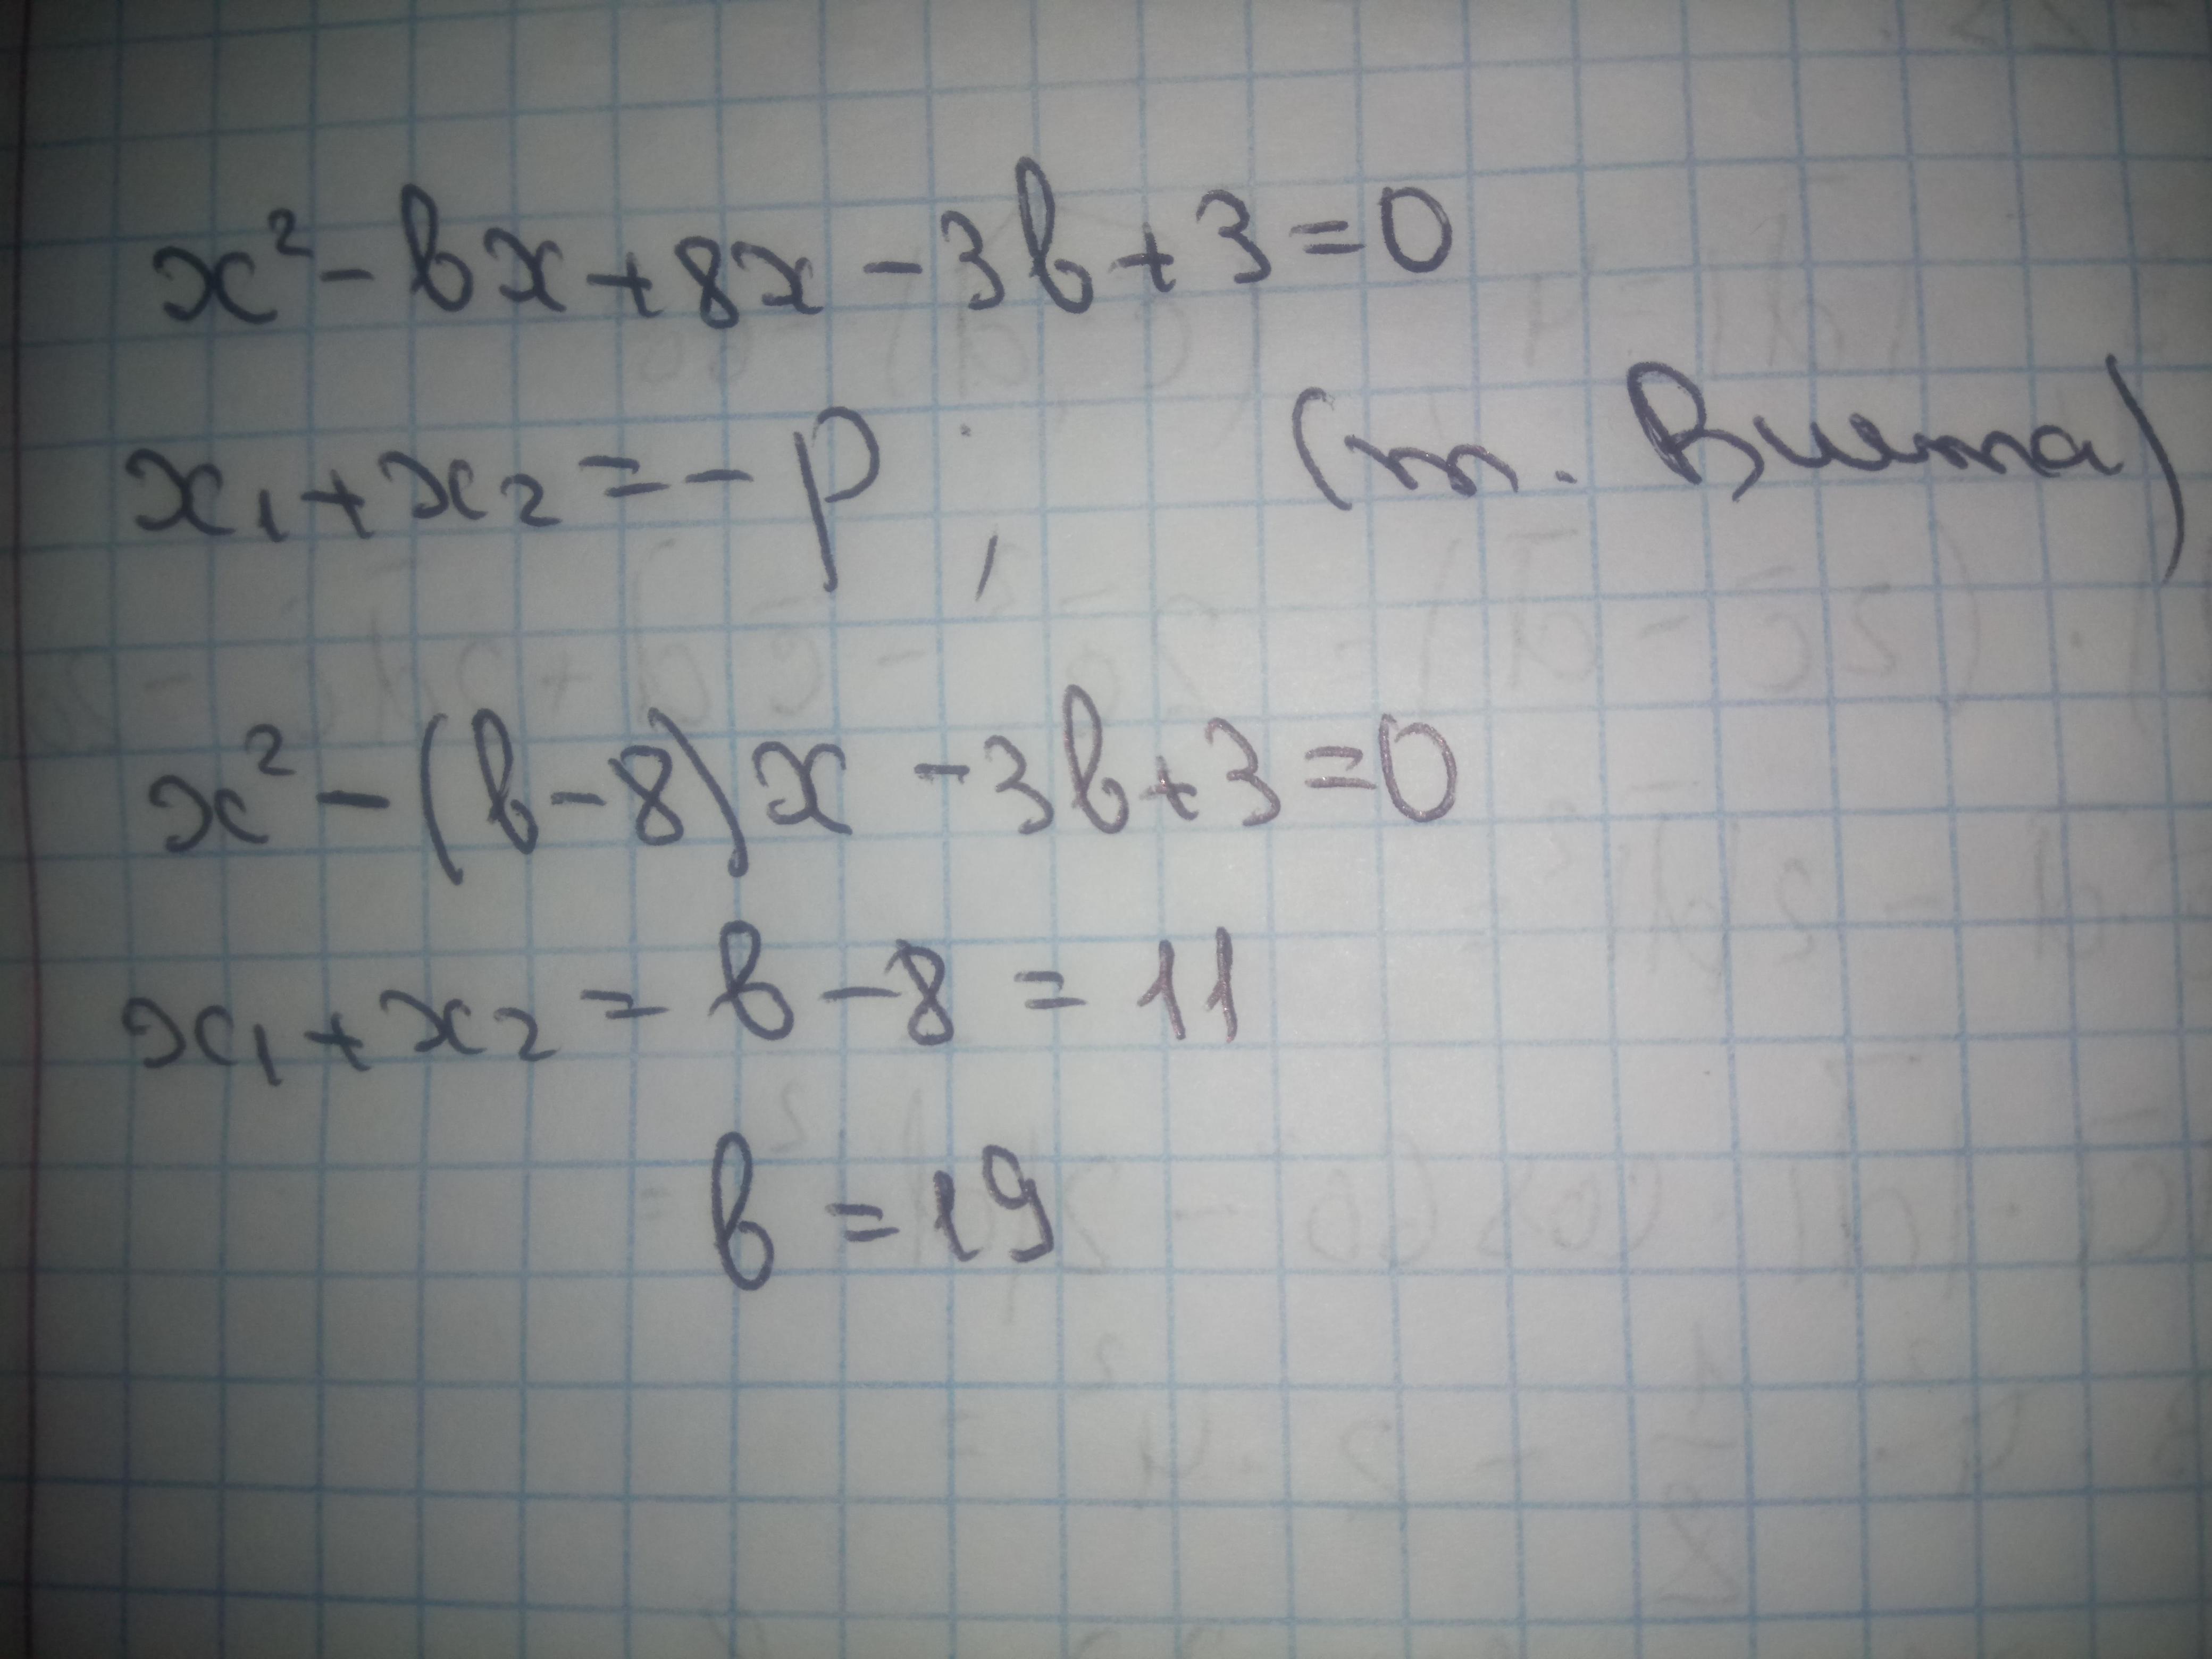 x² - вx + 8x - 3в + 3 = 0
x₁ + x₂ = -p; (т. Виета)
x² - (в - 8)x - 3в + 3 = 0
x₁ + x₂ = в - 8 = 11
в = 19